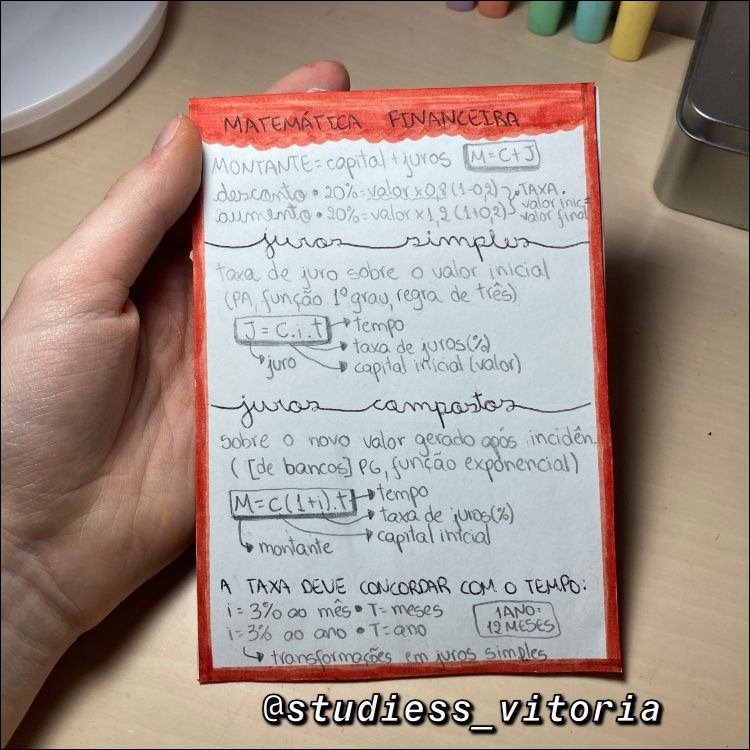 MATEMÁTICA FINANCEIRA
MONTANTE = capital + juros M = C + J
desconto • 20% = valor x 0,8 (1-0,2) } • TAXA •
aumento • 20% = valor x 1,2 (1+0,2) } valor inic =
valor final
juros simples
taxa de juro sobre o valor inicial
(PA, função 1º grau, regra de três)
J = C.i.t → tempo
→ taxa de juros (%)
→ juro → capital inicial (valor)
juros compostos
sobre o novo valor gerado após incidên.
([de bancos] PG, função exponencial)
M = C(1+i).t → tempo
→ taxa de juros (%)
→ capital inicial
→ montante
A TAXA DEVE CONCORDAR COM O TEMPO:
i = 3% ao mês • T = meses
i = 3% ao ano • T = ano
1 ANO:
12 MESES
→ transformações em juros simples
@studiess_vitoria